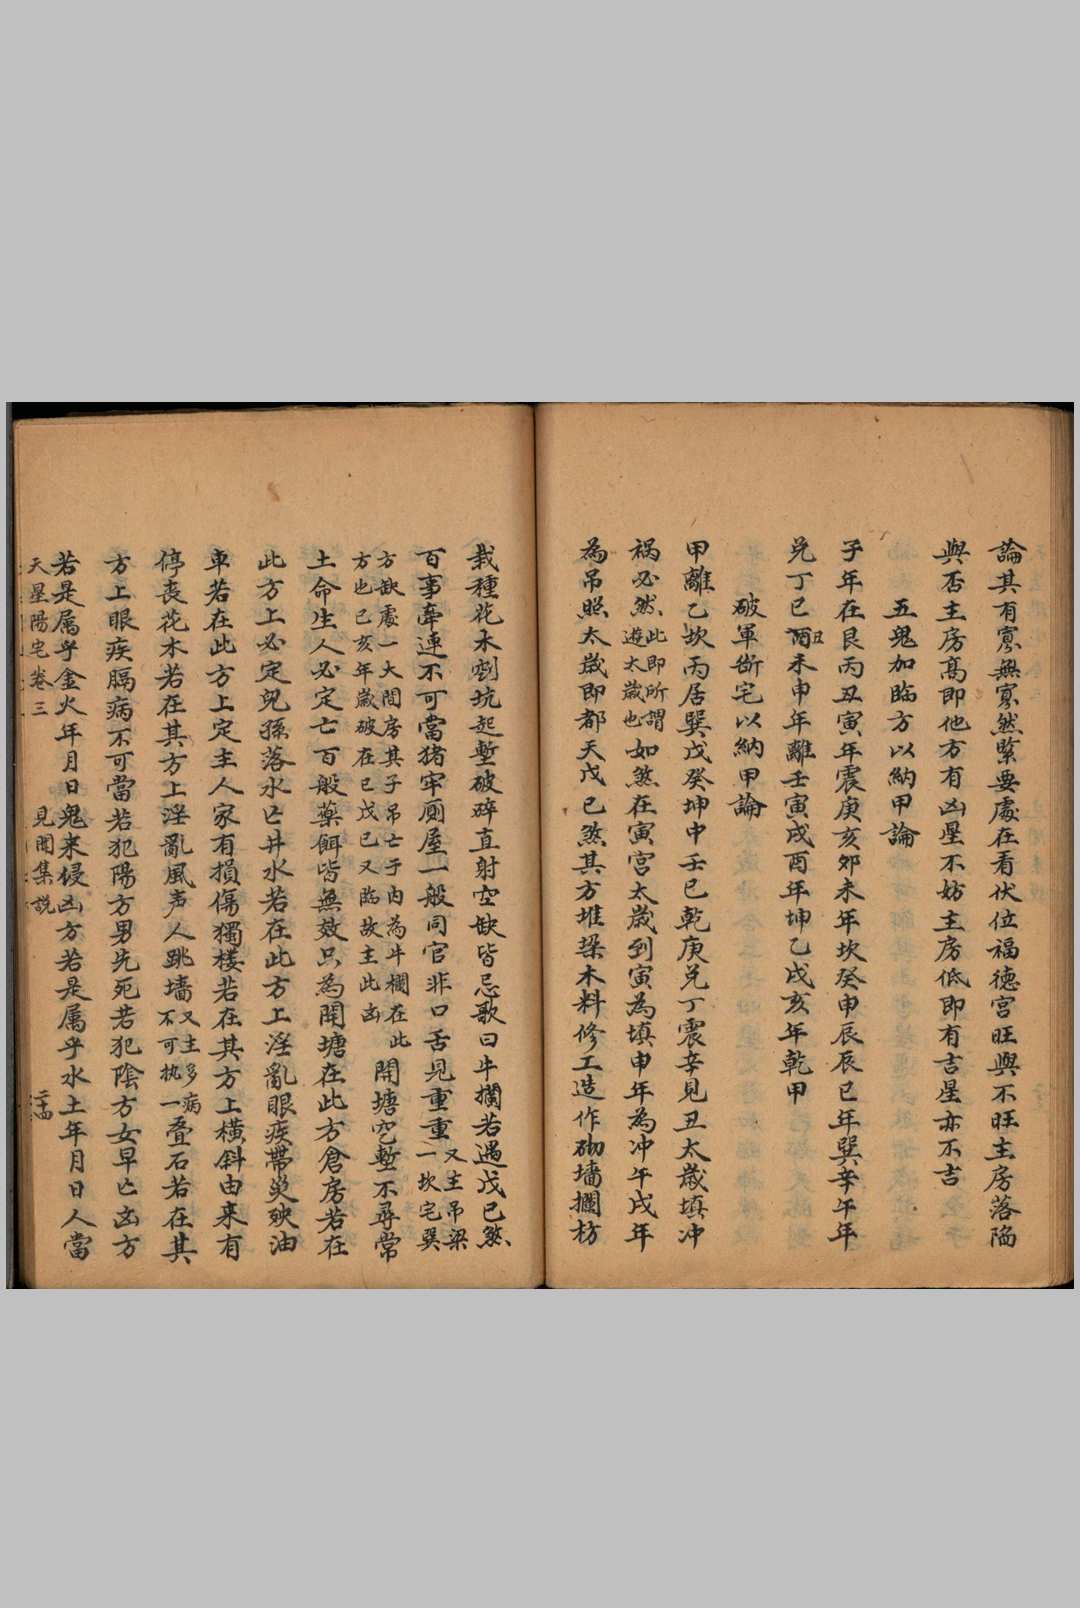 論其有寡無寡然緊要處在看伏位福德宮旺與不旺主房落陷
與否主房髙即他方有凶星不妨主房低即有吉星亦不吉
五鬼加臨方以納甲論
子年在艮丙丑寅年震庚亥夘未年坎癸申辰辰巳年巽辛午年
兊丁巳酉丑未申年離壬寅戌酉年坤乙戌亥年乾甲
破軍断宅以納甲論
甲離乙坎丙居巽戊癸坤中壬巳乾庚兊丁震辛見丑太歲填冲
禍必然此即所謂遊太歲也如煞在寅宮太歲到寅為填申年為冲午戌年
為吊照太歲即都天戊己煞其方堆梁木料修工造作砌墻攔枋
栽種花木劉坑起塹破碎直射空缺皆忌歌曰牛攔若遇戊己煞
百事牽連不可當猪牢厠屋一般同官非口舌見重重又主吊梁一坎宅巽
方缺處一大間房其子吊亡于内為牛欄在此方也己亥年歲破在巳戊己又臨故主此凶開塘穵塹不尋常
土命生人必定亡百般藥餌皆無效只為開塘在此方倉房若在
此方上必定兒孫落水亡井水若在此方上淫亂眼疾帶災殃油
車若在此方上定主人家有損傷獨楼若在其方上横斜由来有
停喪花木若在其方上淫亂風声人跳墻又主多病不可执一叠石若在其
方上眼疾膈病不可當若犯陽方男先死若犯陰方女早亡凶方
若是属乎金火年月日鬼来侵凶方若是属乎水土年月日人當
天星陽宅卷三 見聞集説 二十四